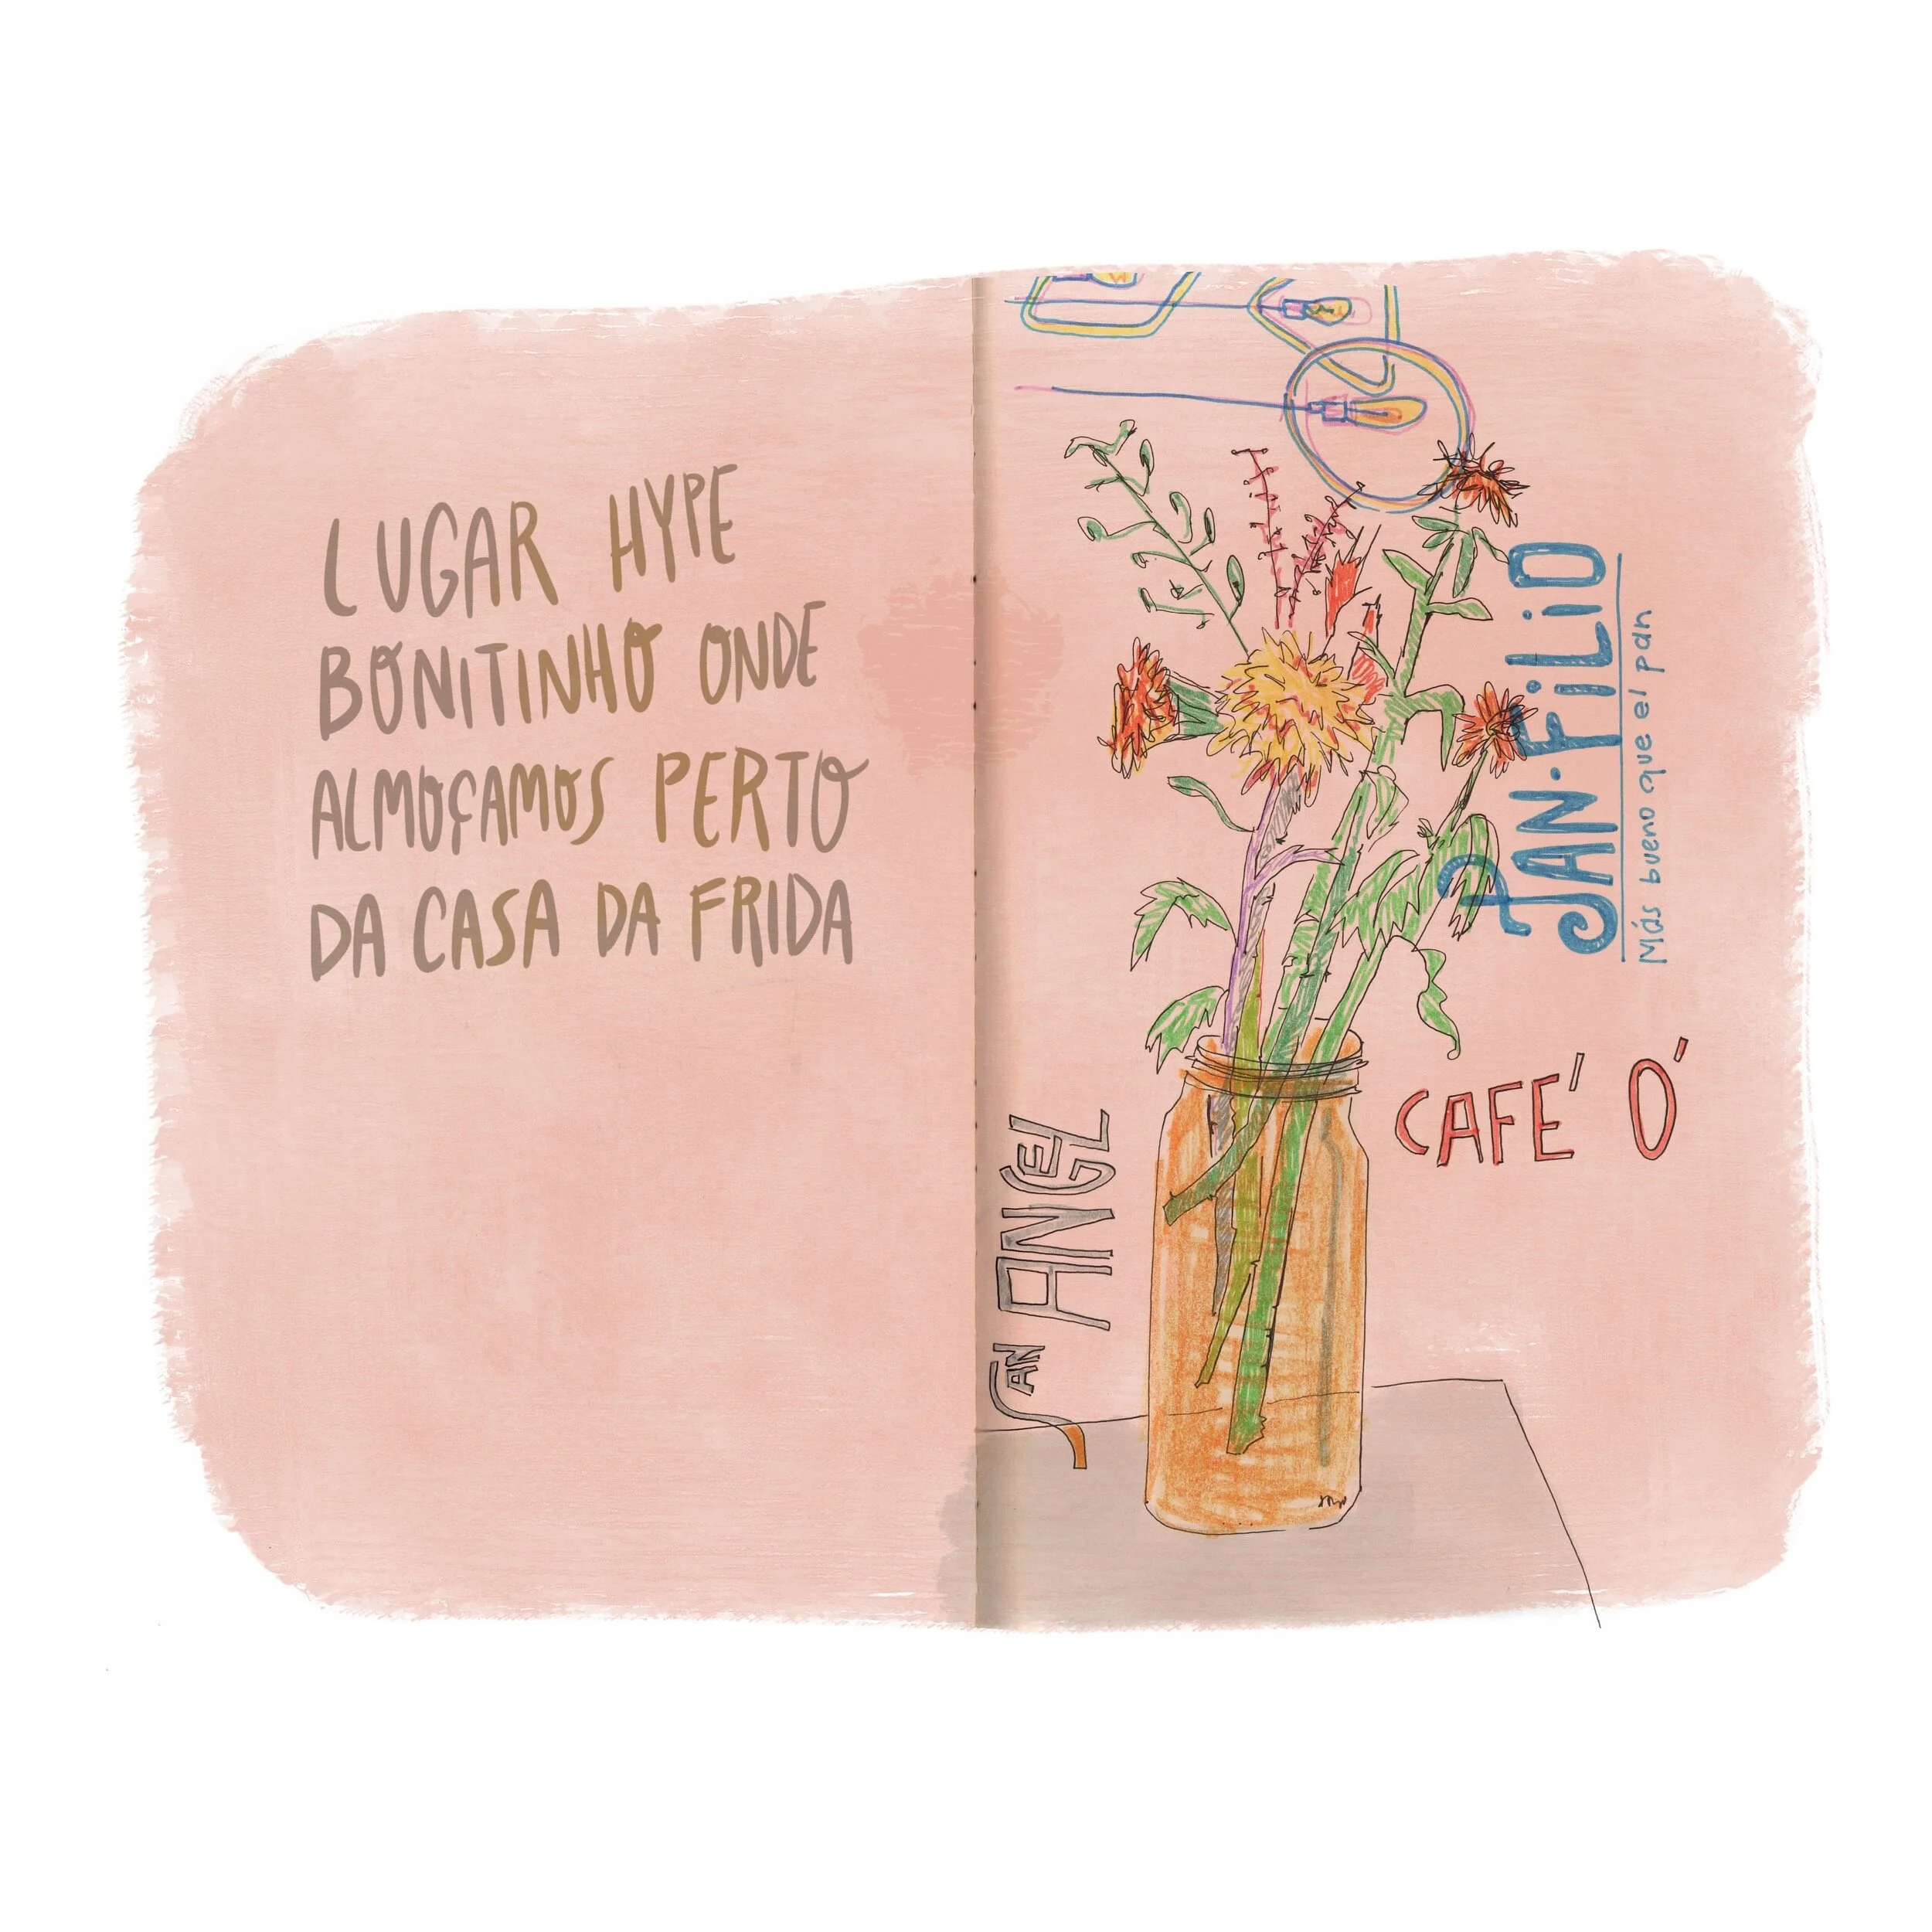 LUGAR HYPE
BONITINHO ONDE
ALMOÇAMOS PERTO
DA CASA DA FRIDA
PAN·FiLiO
Más bueno que el pan
CAFÉ Ó
SAN ANGEL